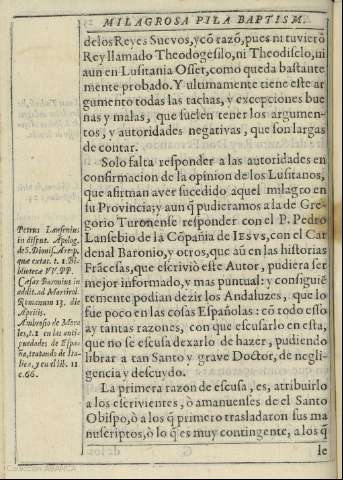 MILAGROSA PILA BAPTISM.
de los Reyes Suevos, y cõ razõ, pues ni tuvierõ
Rey llamado Theodogesilo, ni Theodisclo, ni
aun en Lusitania Osset, como queda bastante
mente probado. Y ultimamente tiene este ar
gumento todas las tachas, y excepciones bue
nas y malas, que suelen tener los argumen-
tos, y autoridades negativas, que son largas
de contar.
Solo falta responder a las autoridades en
confirmacion de la opinion de los Lusitanos,
que afirman aver sucedido aquel milagro en
su Provincia; y aun q̃ pudieramos a la de Gre-
gorio Turonense responder con el P. Pedro
Lansebio de la Cõpañia de IESVS, con el Car
denal Baronio, y otros, que aũ en las historias
Frãcesas, que escriviò este Autor, pudiera ser
mejor informado, y mas puntual: y consiguiẽ
temente podian dezir los Andaluzes, que lo
fue poco en las cosas Españolas: cõ todo esso
ay tantas razones, con que escusarlo en esta,
que no se escusa dexarlo de hazer, pudiendo
librar a tan Santo y grave Doctor, de negli-
gencia y descuydo.
La primera razon de escusa, es, atribuirlo
a los escrivientes, ò amanuenses de el Santo
Obispo, ò a los q̃ primero trasladaron sus ma
nuscriptos, ò lo q̃ es muy contingente, a los q̃
le
Petrus Lansenius
in disput. Apolog.
de S. Dionis. Areop.
quæ extat. t. 1. Bi-
blioteca VV. PP.
Cæsar Baronius in
addit. ad Martirol.
Romanum 13. die
Aprilis.
Ambrosio de Mora
les, t. 2 en las anti
guedades de Espa-
ña, tratando de Ita-
lica, y en el lib. 11
c. 66.
Colección ABANCA